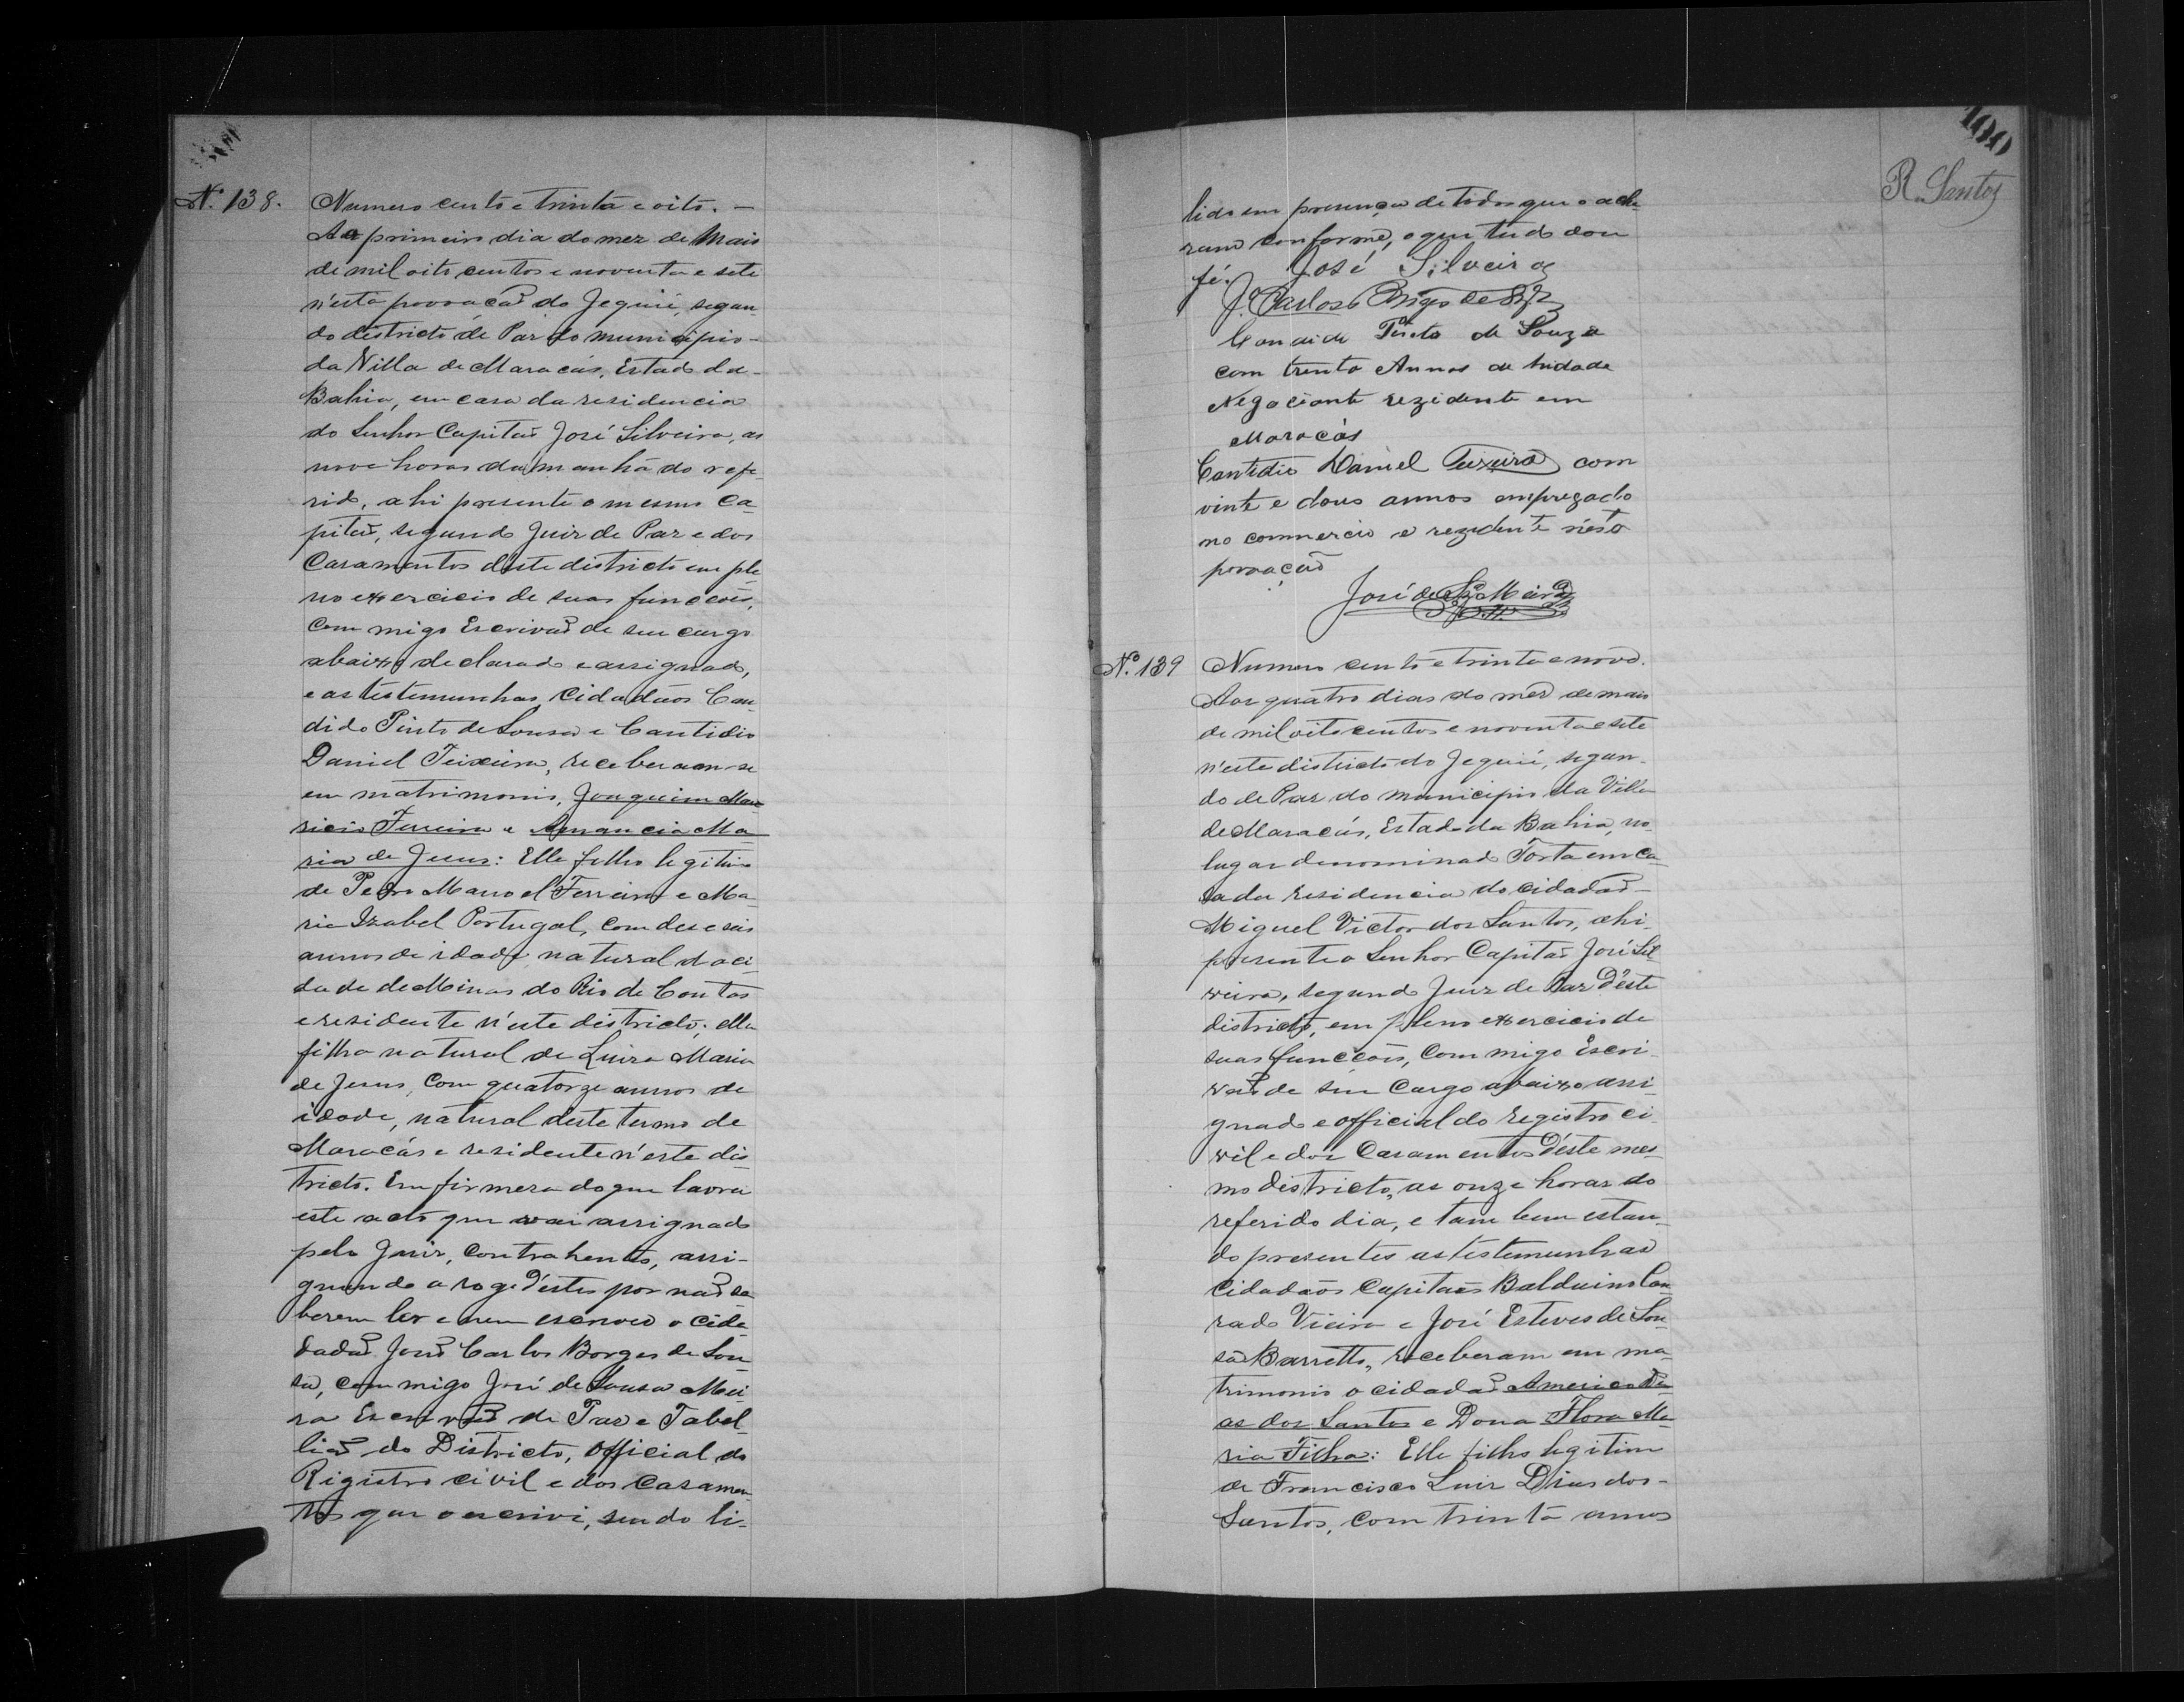 Nº 138.
Numero cento e trinta e oito. —
Ao primeiro dia do mez de Maio
de mil oito centos e noventa e sete
n'esta povoação do Jequié, segun-
do districto de Paz do municipio
da Villa de Maracás, Estado da
Bahia, em casa da residencia
do Senhor Capitão José Silveira, as
nove horas da manhã do refe-
rido, ahi presente o mesmo Ca-
pitão, segundo Juiz de Paz e dos
Casamentos deste districto em ple-
no exercicio de suas funccões,
commigo Escrivão de seu cargo
abaixo declarado e assignado,
e as testemunhas Cidadãos Can-
dido Pinto de Sousa e Cantidio
Daniel Teixeira, receberam-se
em matrimonio, Joaquim Mau-
ricio Ferreira e Amancia Ma-
ria de Jesus: Elle filho legitimo
de Pedro Manoel Ferreira e Ma-
ria Izabel Portugal, com deseseis
annos de idade natural da ci-
dade de Minas do Rio de Contas
e residente n'este districto; ella
filha natural de Luiza Maria
de Jesus, com quatorze annos de
idade, natural deste termo de
Maracás e residente n'este dis-
tricto. Em firmesa do que lavrei
este acto que vai assignado
pelo Juiz, Contrahentes, assi-
gnando a rogo d'estes por não sa-
berem ler e nem escrever o cida-
dadão João Carlos Borges de Sou-
sa, commigo José de Sousa Mei-
ra Escrivão de Paz e Tabel-
lião do Districto, Official do
Rigistro civil e dos Casamen-
tos que o escrivi, sendo li-
100
R. Santos
lido em presença de todos que o acha-
ram conforme, o que tudo dou
fé.
José Silveira
J. Carlos Borges de Sza
Candido Pinto de Souza
com trenta Annos de hidade
Negociante rezidente em
Maracás
Cantidio Daniel Teixeira com
vinte e dous annos empregado
no commercio e rezidente n'esta
povoação
José de Sza Meira
Nº 139
Numero cento e trinta e nove.
Aos quatro dias do mez de maio
de mil oito centos e noventa e sete
n'este districto do Jequié, segun-
do de Paz do municipio da Villa
de Maracás, Estado da Bahia, no
lugar denominado Torta em ca-
sa da residencia do cidadão
Miguel Victor dos Santos, ahi
presente o Senhor Capitão José Sil-
veira, segundo Juiz de Paz d'este
districto, em pleno exercicio de
suas funccões, commigo Escri-
vão de seu Cargo abaixo assi-
gnado e official do registro ci-
vil e dos Casamentos d'este mes-
mo districto, as onze horas do
referido dia, e tam bem estan-
do presentes as testemunhas
Cidadãos Capitães Balduino Con-
rado Vieira e José Esteves de Sou-
sa Barretto, receberam em ma-
trimonio o cidadão Americo Di-
as dos Santos e Dona Flora Ma-
ria Filha: Elle filho legitimo
de Francisco Luiz Dias dos
Santos, com trinta annos